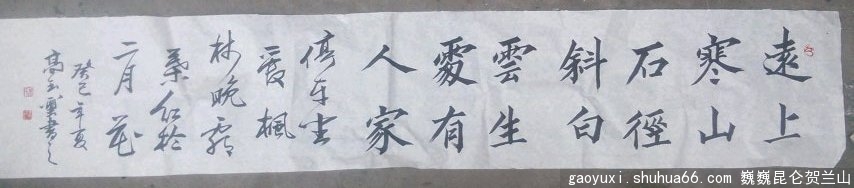 遠上
寒山
石徑
斜白
雲生
處有
人家
停车坐
爱楓
林晚霜
葉红於
二月花
癸巳年夏
高玉玺书之
gaoyuxi.shuhua66.com 巍巍昆仑贺兰山